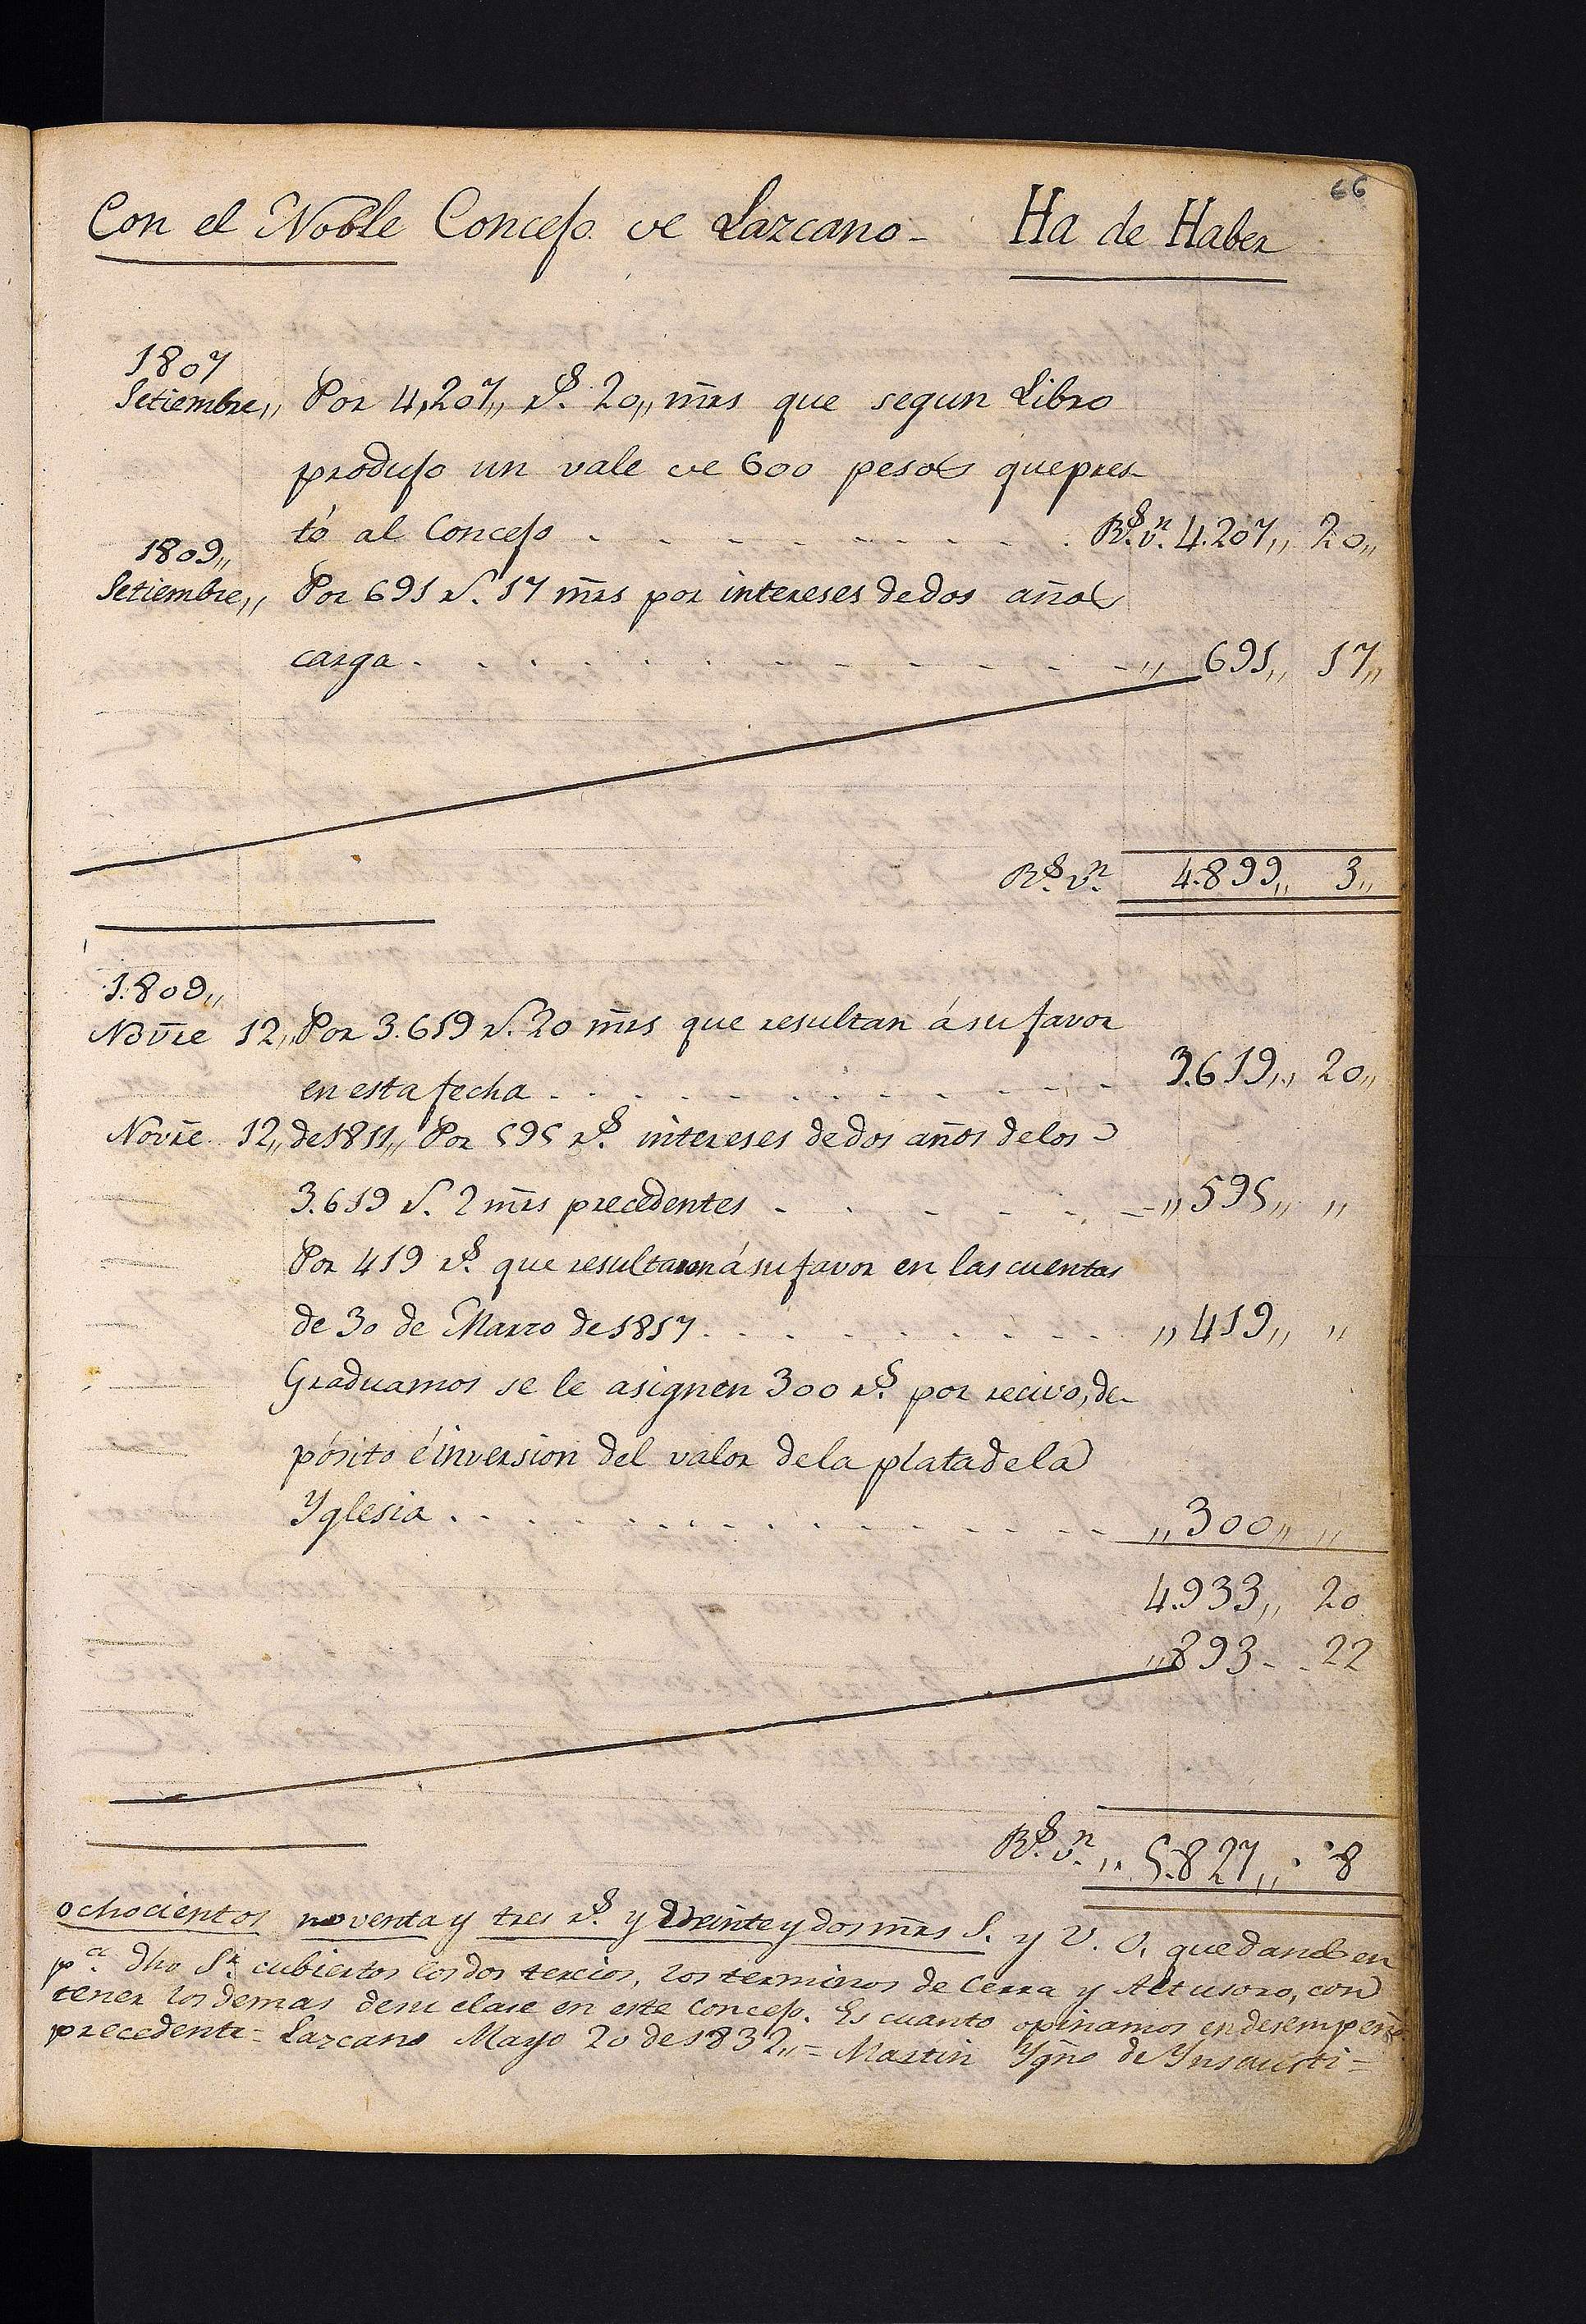 66
Con el Noble Concejo de Lazcano - Ha de Haber
1807
Setiembre,, Por 4,207,, rs. 20,, mrs que segun Libro
produjo un vale de 600 pesos que pres-
tó al Concejo . . . . . . . . . Rs. vn. 4.207,, 20,,
1809,,
Setiembre,, Por 691 rs. 17 mrs por intereses de dos años
carga . . . . . . . . . . . . ,, 691,, 17,,
Rs. vn. 4.899,, 3,,
1.809,,
Novre 12,, Por 3.619 rs. 20 mrs que resultan á su favor
en esta fecha . . . . . . . . . . 3.619,, 20,,
Novre 12,, de 1811,, Por 595 rs. intereses de dos años de los
3.619 rs. 2 mrs precedentes . . . . . . ,, 595,, ,,
Por 419 rs. que resultaron á su favor en las cuentas
de 30 de Marzo de 1817 . . . . . . . . ,, 419,, ,,
Graduamos se le asignen 300 rs. por recivo, de-
pósito é inversion del valor de la plata de la
Yglesia . . . . . . . . . . . . . ,, 300,, ,,
4.933,, 20
,, 893 - - 22
Rs. vn. ,, 5.827,, . 8
ochocientos noventa y tres rs. y veinte y dos mrs S. y V. O. quedando en
pa. dho Sr. cubiertos los dos tercios, los terminos de Cerra y Altusoro, con
tener los demas de su clase en este Concejo. Es cuanto opinamos en desempeño
precedente = Lazcano Mayo 20 de 1832,, = Martin Ygno de Ynsausti =